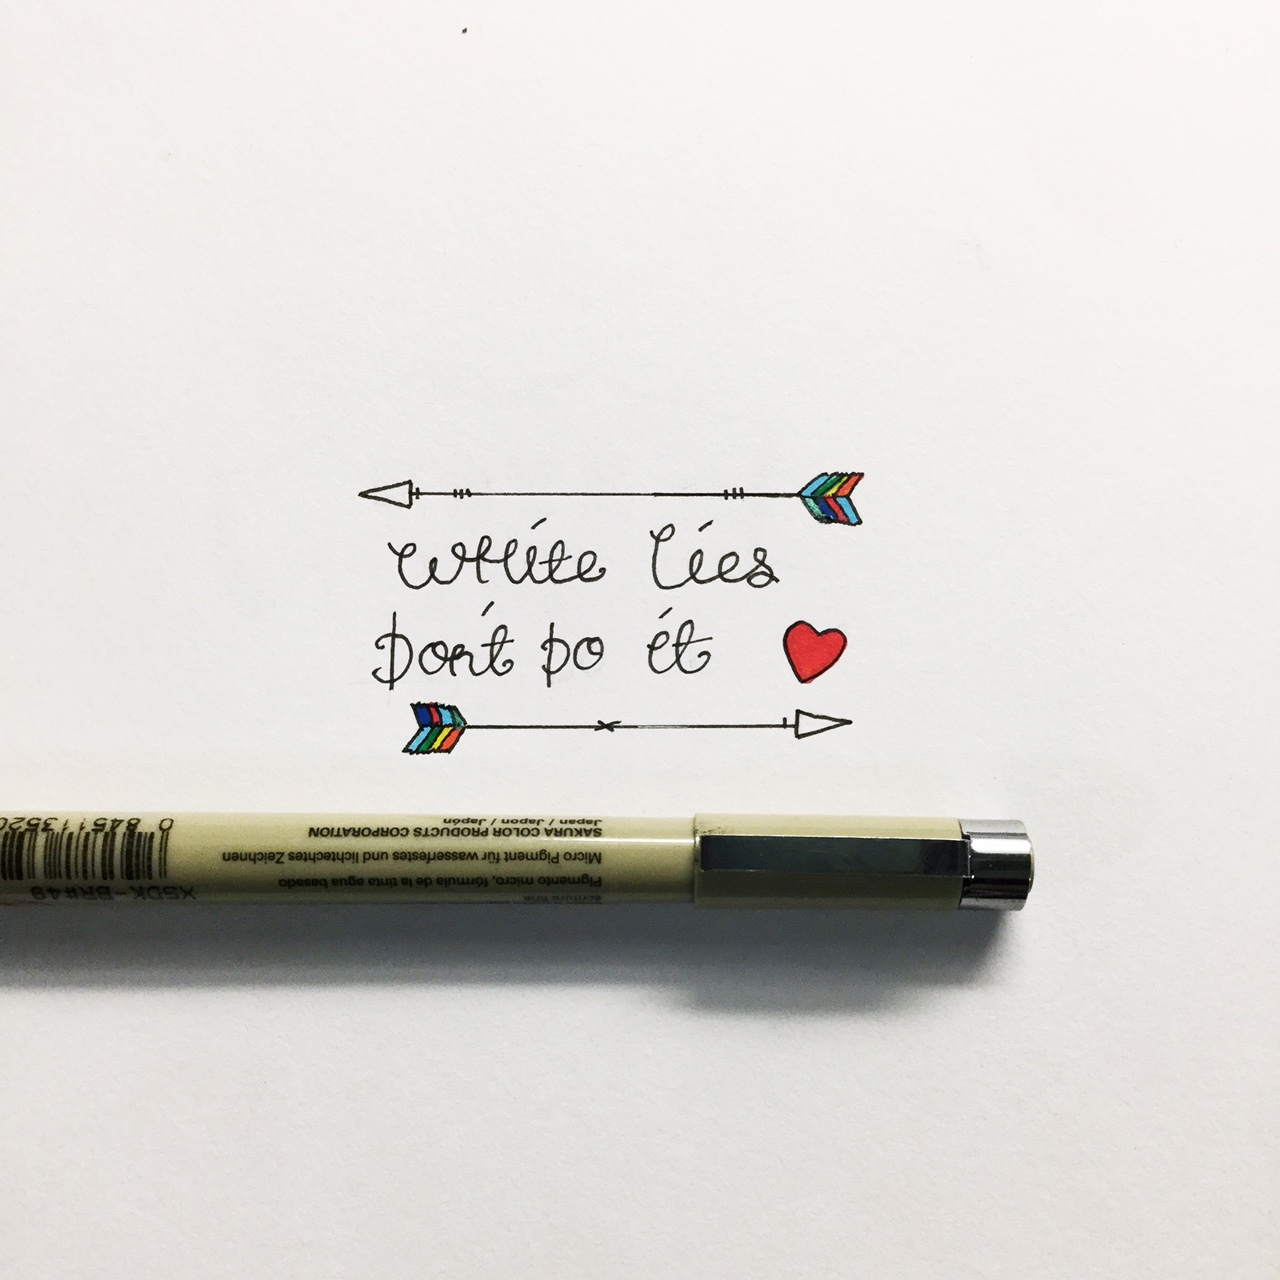 WHite lies
Don't Do it
0 84511 3520
SAKURA COLOR PRODUCTS CORPORATION
Japan / Japon / Japón
Micro Pigment für wasserfestes und lichtechtes Zeichnen
Pigmento micro, fórmula de la tinta agua basada
écriture fine
XSDK-BR#49